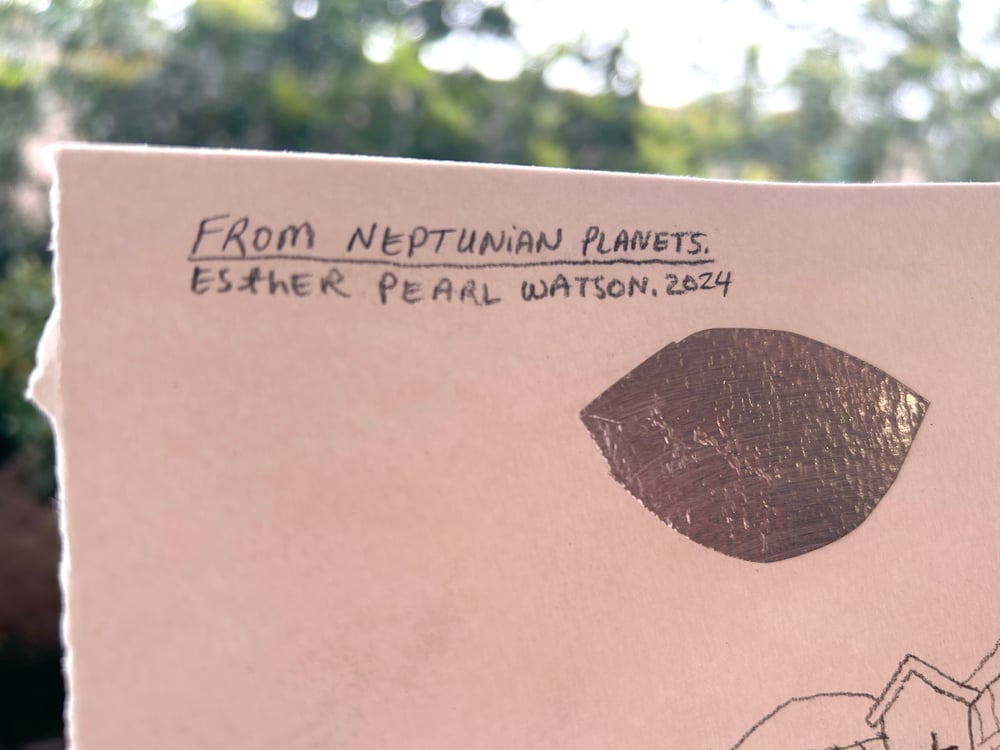 FROM NEPTUNiAN PLANETS.
ESthER PEARL WATSON. 2024